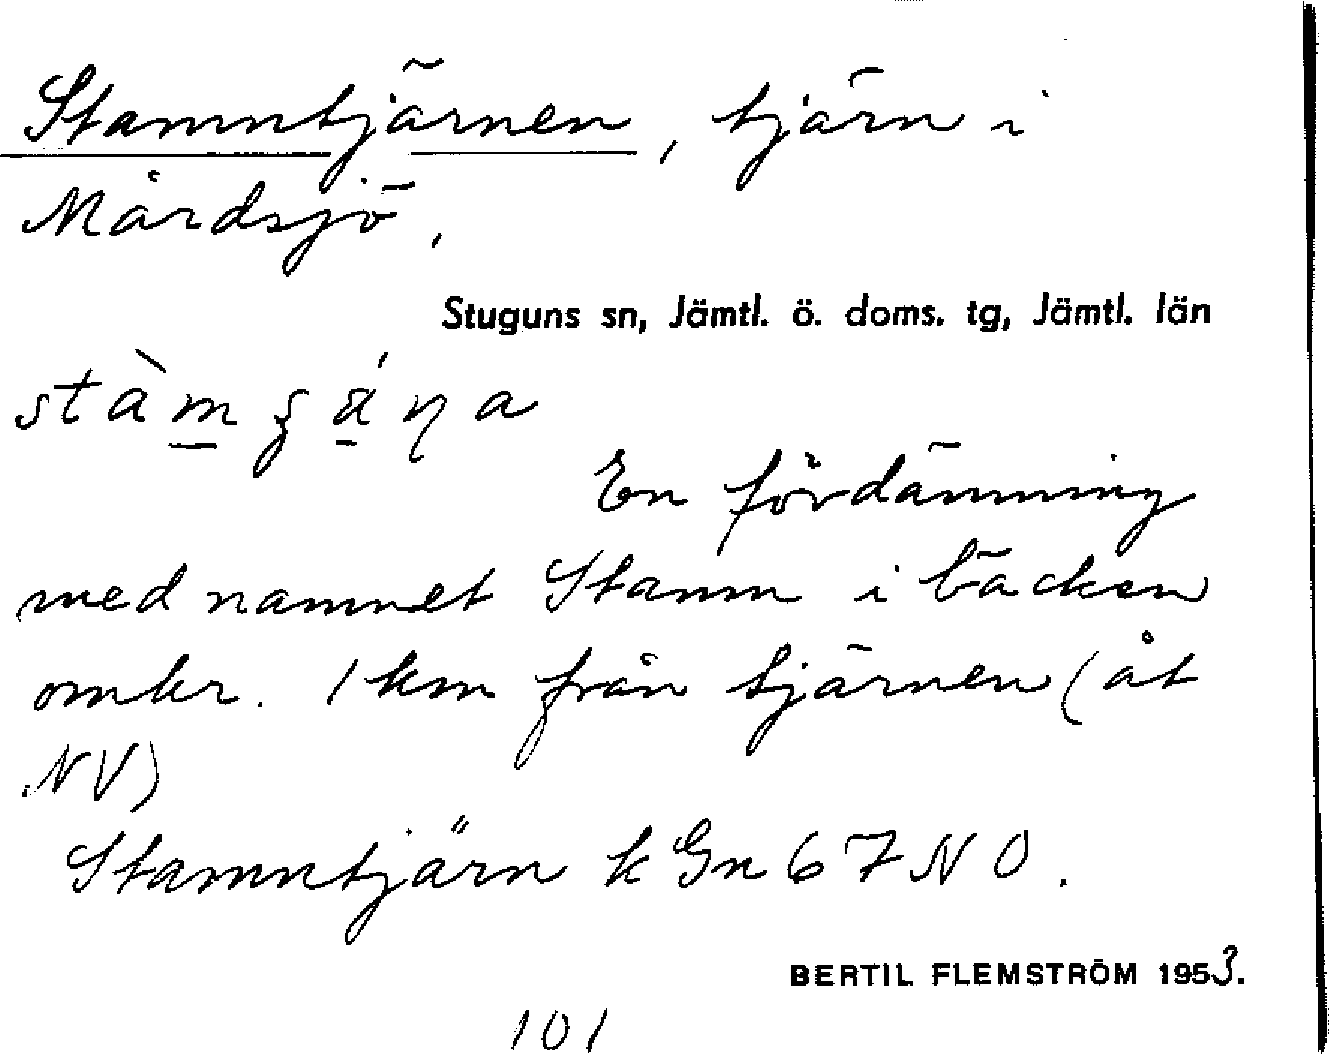 Stamntjärnen, tjärn i
Mårdsjö,
Stuguns sn, Jämtl. ö. doms. tg, Jämtl. län
En fördämning
med namnet Stamm i bäcken
omkr. 1 km från tjärnen (åt
NV)
Stamntjärn k Gn 67 NO.
BERTIL FLEMSTRÖM 1953.
101